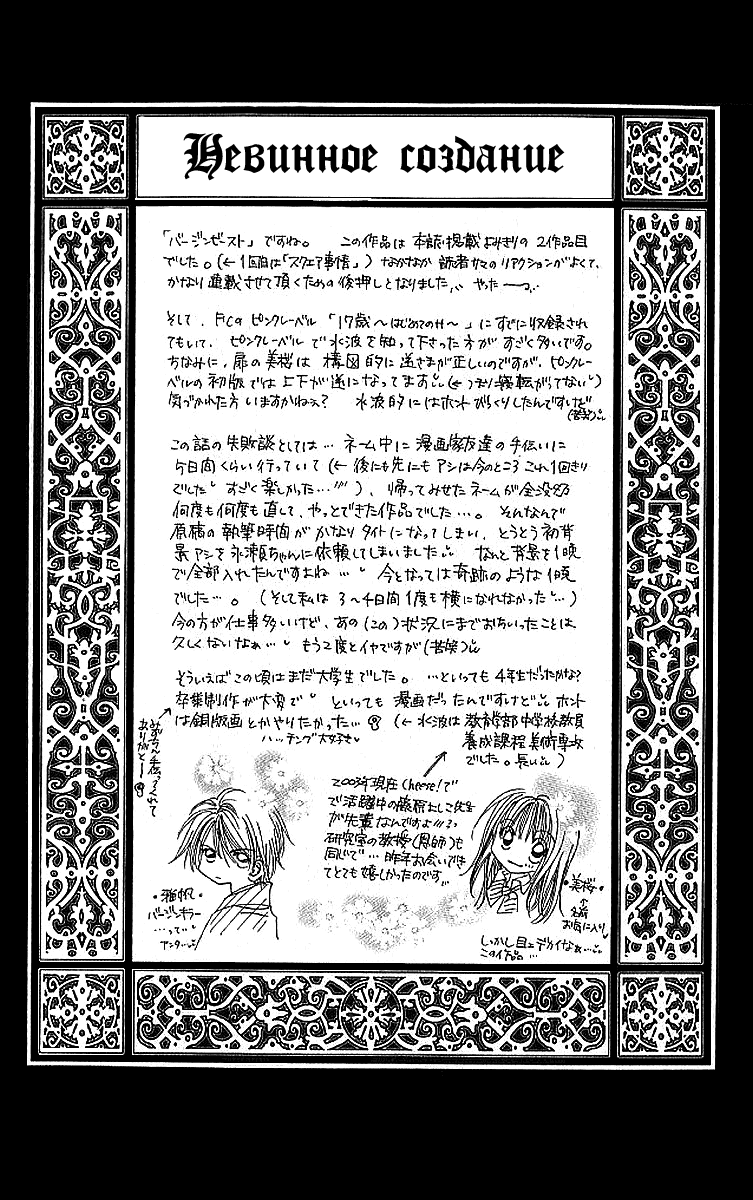 Невинное создание
「バージンゼースト」ですね。 この作品は 本誌掲載よみきりの 2作品目
でした。(←1回目は「スクエア事情」) なかなか 読者サマの リアクションがよくて、
かなり 連載させて頂くための後押しとなりました やったーっ
そして、FCの ピンクレーベル 「17歳〜はじめてのH〜」にすでに収録され
てもいて、ピンクレーベルで 水波を知って下さった方が すごく多いです。
ちなみに、扉の美桜は 構図的に 逆さまが正しいのですが、ピンクレー
ベルの初版では上下が逆になってます(←つまり寝転がってない)
気づかれた方いますかねぇ? 水波的にはホントびっくりしたんですけど
(苦笑)
この話の失敗談としては… ネーム中に 漫画家友達の手伝いに
5日間くらい行っていて(←後にも先にもアシは今のところこれ1回きり
でした すごく楽しかった…!!)、帰ってみせたネームが全没
何度も何度も直して、やっとできた作品でした…。 そんなんで
原稿の執筆時間が かなりタイトになってしまい、とうとう初背
景アシを氷瀬ちゃんに依頼してしまいました なんと背景を1晩
で全部入れたんですよね… 今となっては奇跡のような1晩
でした…。 (そして私は 3〜4日間1度も横になれなかった…)
今の方が仕事多いけど、あの(この)状況にまでおちいったことは
久しくないなぁ… もう2度とイヤですが(苦笑)
そういえばこの頃はまだ大学生でした。 …といっても4年生だったかな?
卒業制作が大変で といっても 漫画だったんですけど ホント
は銅版画とかやりたかった… (←水波は 教育学部中学校教員
養成課程 美術専攻
でした。長い)
ハッチング大好き
手伝ってくれて
ありがとー
2003年現在Cheese!で
で活躍中の藤原よしこ先生
が先輩なんですよ!!!
研究室の教授(恩師)も
同じで… 昨年お会いでき
てとても嬉しかったのです
・雅帆・
バージンキラー
…って
アンタ…
・美桜・
↑
名前
お気に入り
しかし目がデカイなぁ…
この作品…